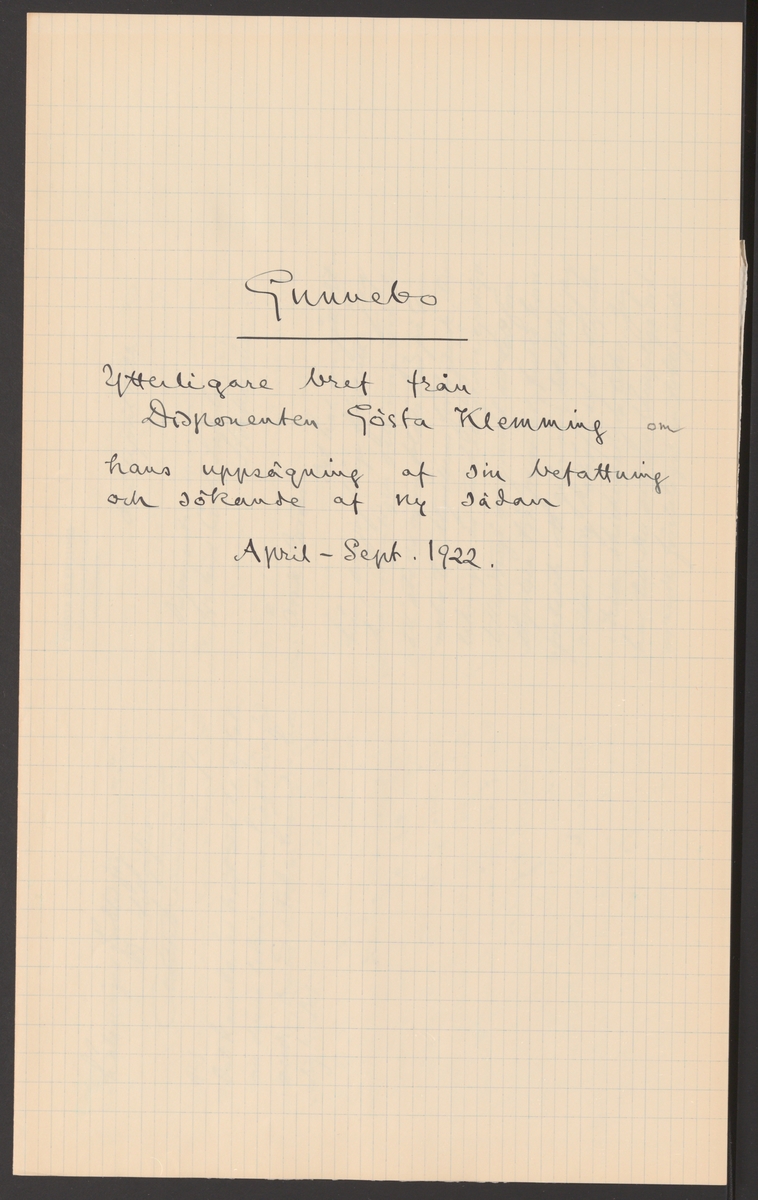 Gunnebo
Ytterligare bref från
Disponenten Gösta Klemming om
hans uppsägning af sin befattning
och sökande af ny sådan
April - Sept. 1922.